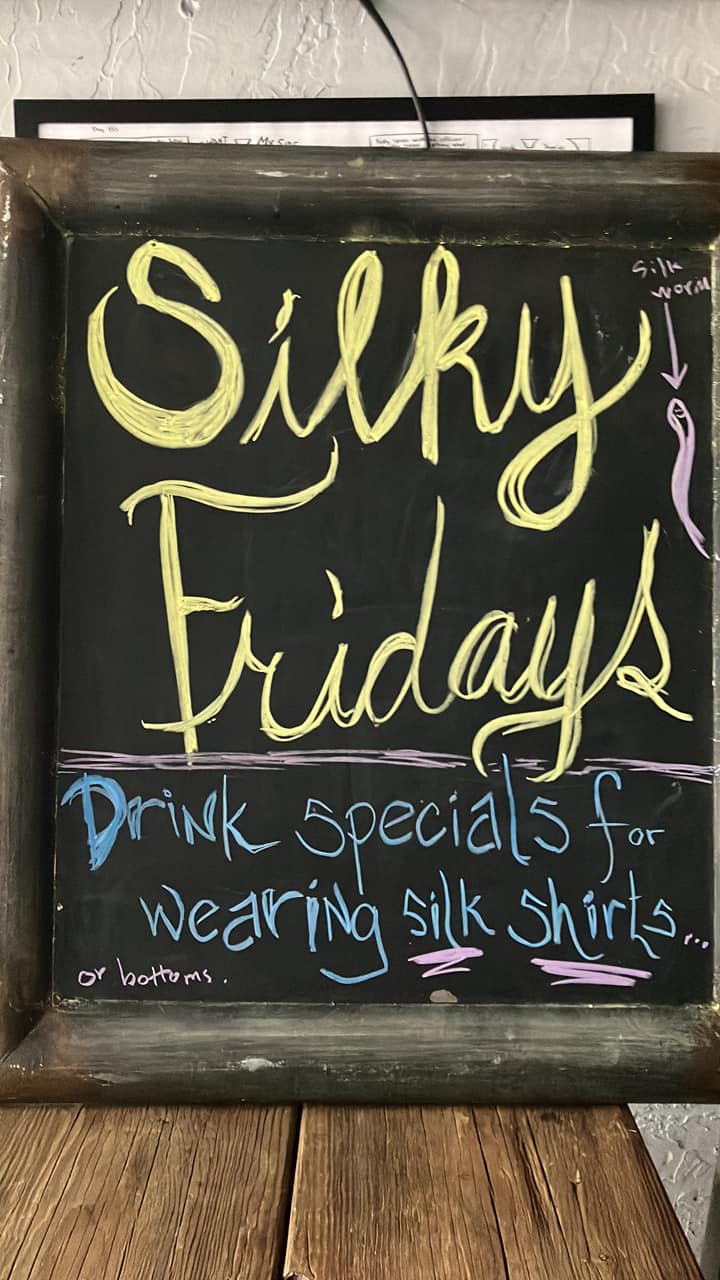 Silky
silk
worm
Fridays
Drink specials for
wearing silk shirts...
or bottoms.